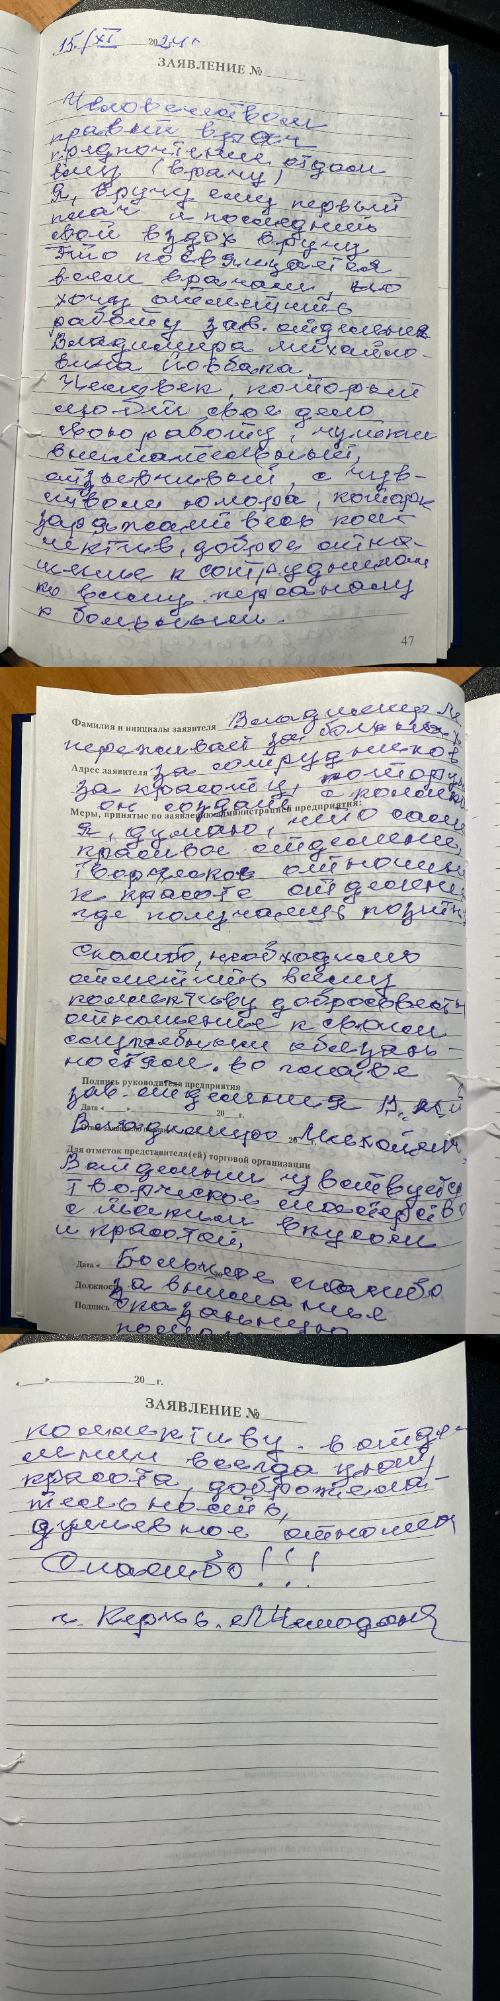 15/XI 2024 г
ЗАЯВЛЕНИЕ №
Человечеством
правит врач
предпочтение отдам
ему (врачу)
Я, вручу ему первый
плач и последний
свой вздох вручу
Это посвящается
всем врачам, но
хочу отметить
работу зав. отделения
Владимира Михайло-
вича
Человек, который
любит свое дело
свою работу,
внимательный,
отзывчивый, с чув-
ством юмора, который
заряжает весь кол-
лектив, доброе отно-
шение к сотрудникам
ко всему персоналу
к больным.
47
Фамилия и инициалы заявителя Владимир М
переживает за больных
Адрес заявителя за сотрудников
за красоту, которую
он создал
Меры, принятые по заявлению администрацией предприятия:
Я, думаю, что самое
красивое отделение,
творческое отношение
к красоте отделения
где получаешь позитив
Спасибо, необходимо
отметить всему
коллективу добросовестн
отношение к своим
служебным обязан-
ностям. во главе
Подпись руководителя предприятия
зав. отделения В.
Дата « » 20 г.
Владимир Михайлович
Для отметок представителя(ей) торговой организации
В отделении чувствуется
творческое мастерство
с таким вкусом
и красотой,
Дата « Большое спасибо
Должность за внимание
Подпись оказанную
« » 20 г.
ЗАЯВЛЕНИЕ №
коллективу. в отде-
лении всегда уют,
красота, доброжела-
тельность,
душевное отношен
Спасибо!!!
г. Керчь.